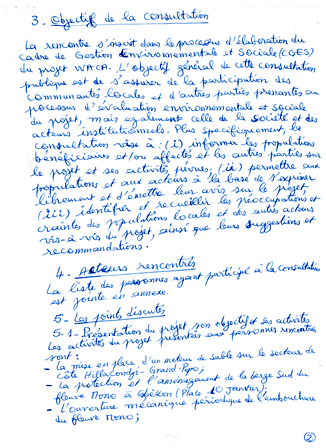 3 - Objectif de la consultation
La rencontre s'inscrit dans le processus d'élaboration du
Cadre de Gestion Environnementale et Sociale (CGES)
du projet WACA. L'objectif général de cette consultation
publique est de s'assurer de la participation des
communautés locales et d'autres parties prenantes au
processus d'évaluation environnementale et sociale
du projet, mais également celle de la société et des
acteurs institutionnels. Plus spécifiquement, la
consultation vise à : (i) informer les populations
bénéficiaires et/ou affectés et les autres parties sur
le projet et ses activités prévues, (ii) permettre aux
populations et aux acteurs à la base de s'exprimer
librement et d'émettre leur avis sur le projet,
(iii) identifier et recueillir les préoccupations et
craintes des populations locales et des autres acteurs
vis-à-vis du projet, ainsi que leurs suggestions et
recommandations.
4 - Acteurs rencontrés
La liste des personnes ayant participé à la consultation
est jointe en annexe.
5 - Les points discutés
5-1- Présentation du projet son objectif et ses activités
Les activités du projet présentées aux personnes rencontrées
sont :
- La mise en place d'un moteur de sable sur le secteur de
côte Hillacondji - Grand-Popo;
- La protection et l'aménagement de la berge Sud du
fleuve Mono à Gbèkon (Place 10 janvier);
- L'ouverture mécanique périodique de l'embouchure
du fleuve Mono;
2